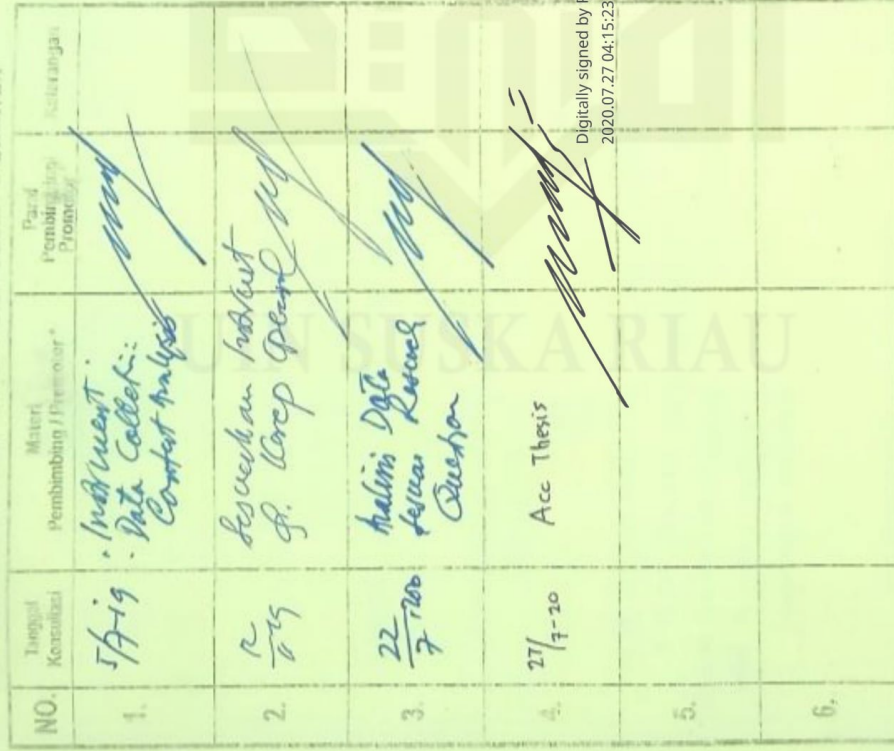 NO.
Tanggal
Konsultasi
Materi
Pembimbing / Promotor *
Paraf
Pembimbing/
Promotor
Keterangan
1.
5/7-19
- Instrument
- Data Collection:
Content Analysis
2.
Sesuaikan Instrument
3.
22/7 2020
Analisis Data
sesuai Research
Question
4.
27/7-20
Acc Thesis
Digitally signed by
2020.07.27 04:15:23
5.
6.
UIN SUSKA RIAU